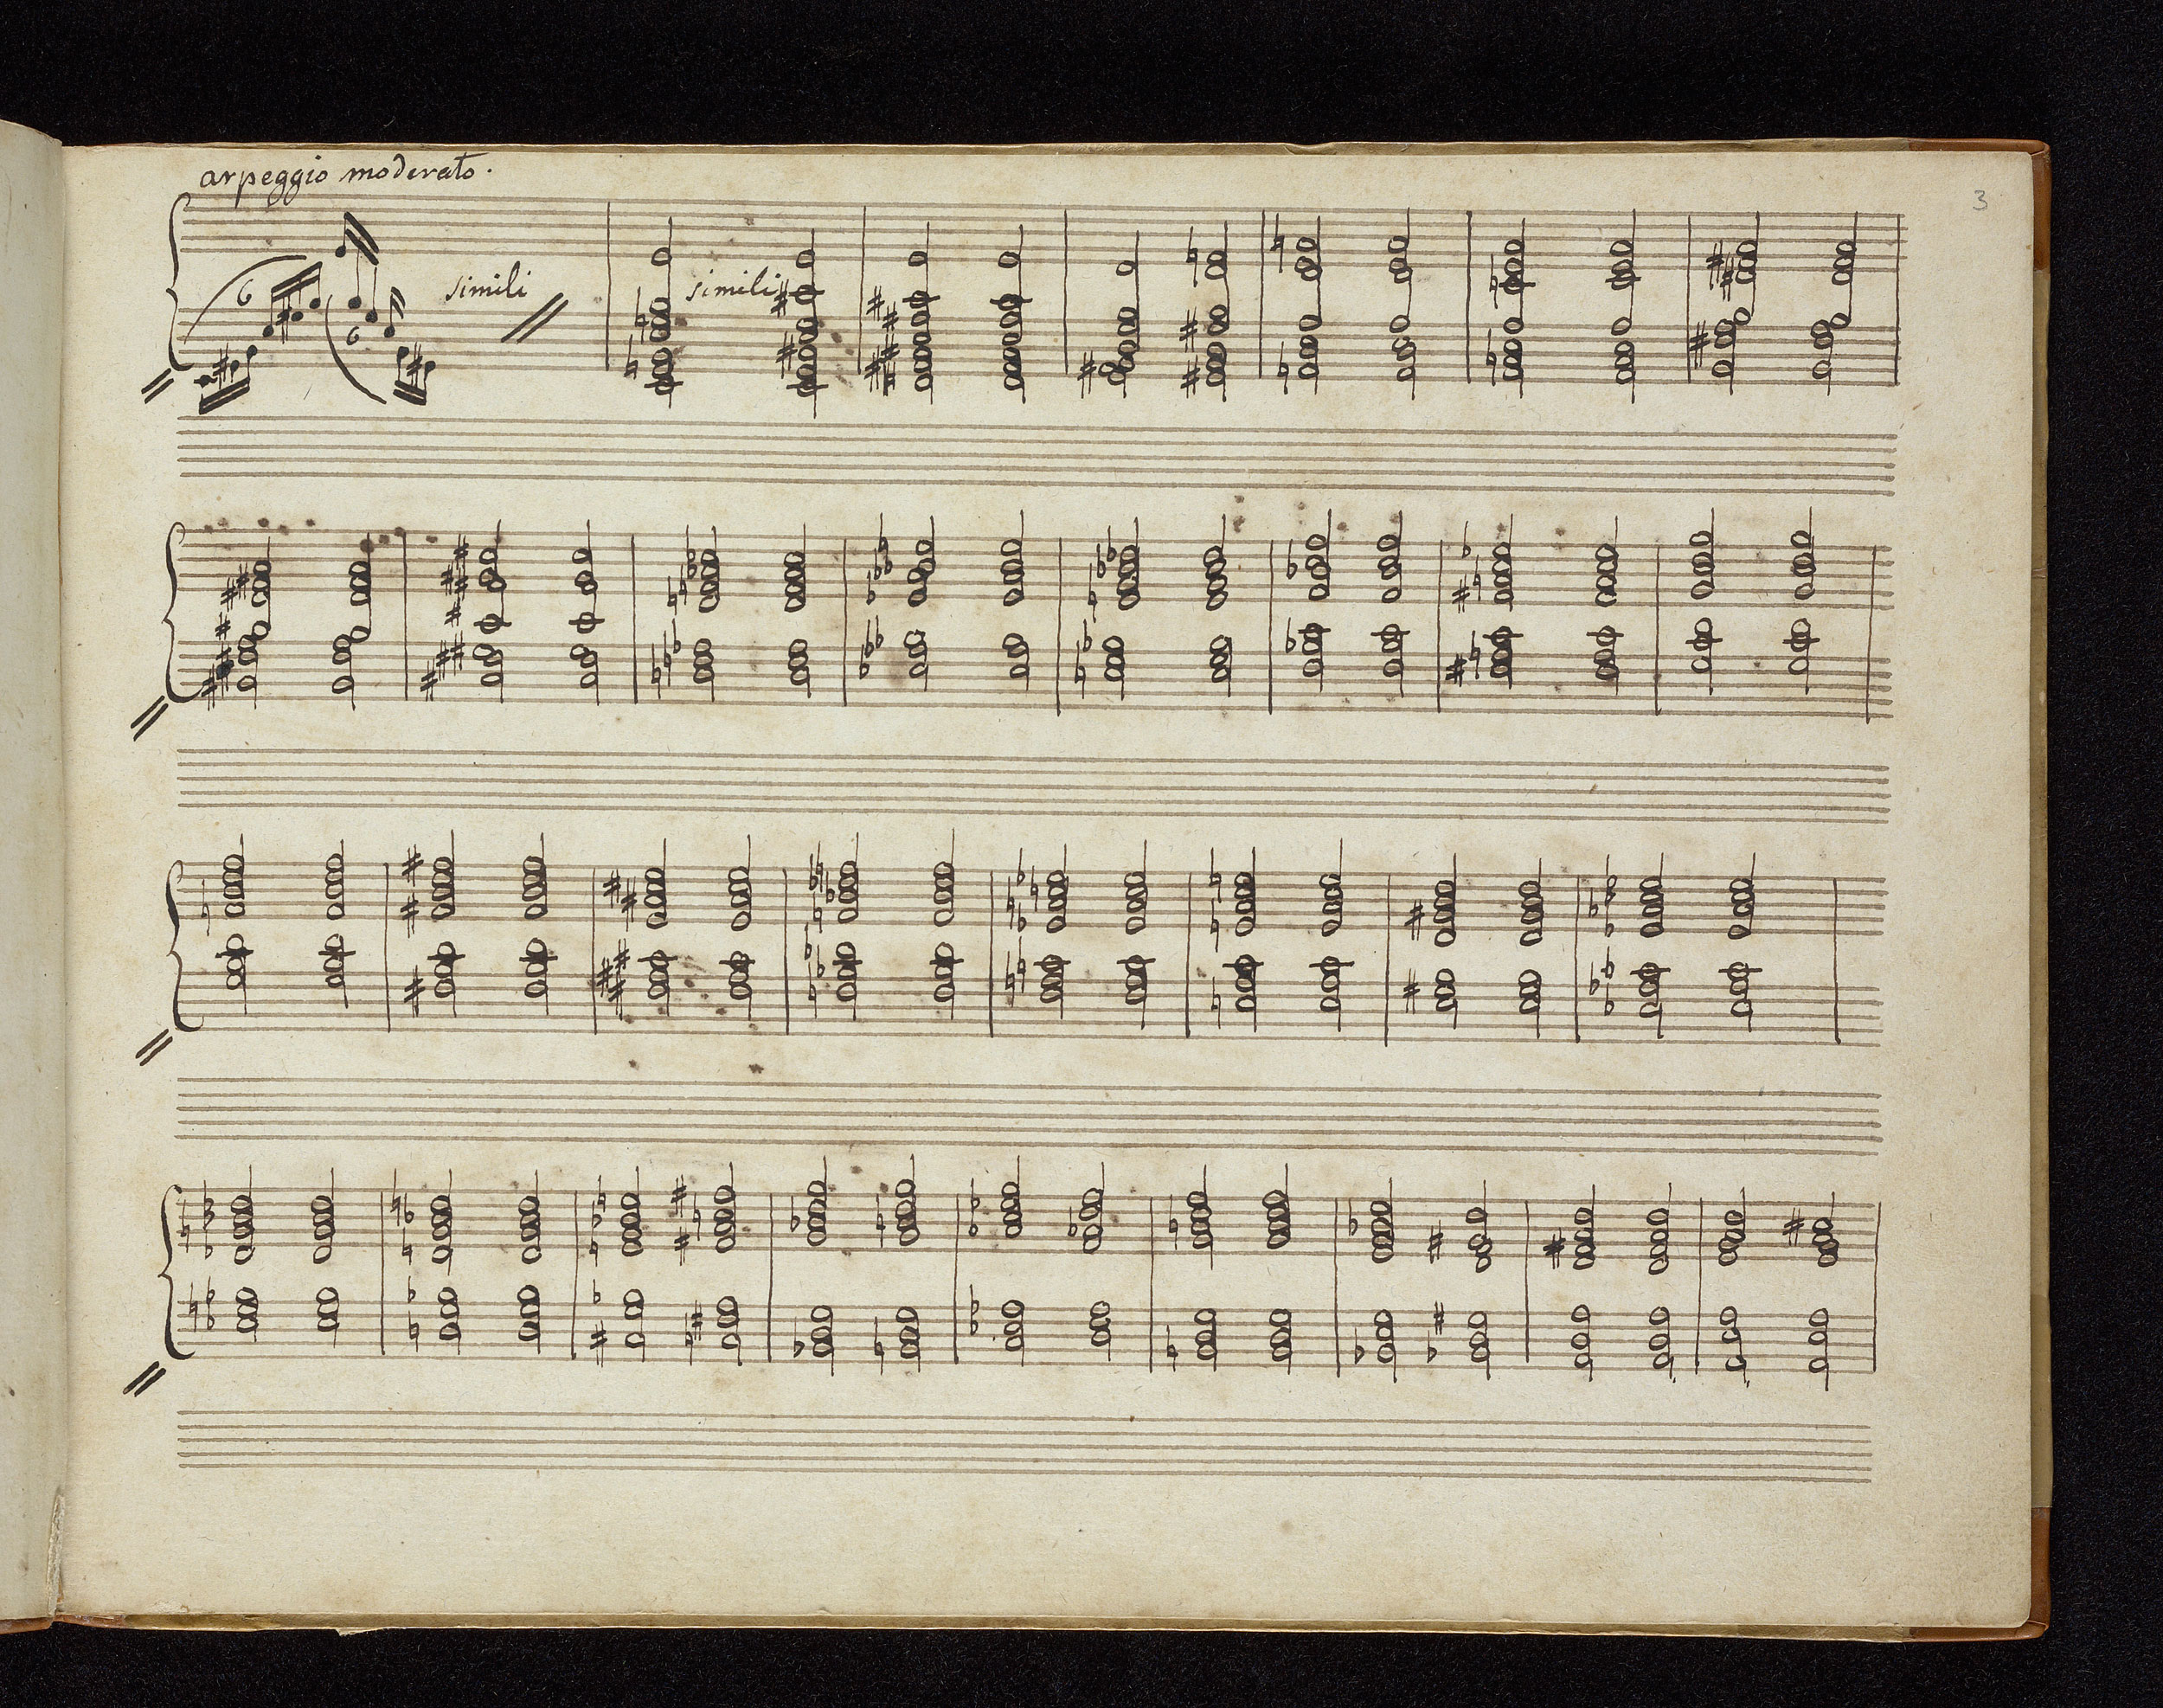 arpeggio moderato.
3
6
simili
simili
6